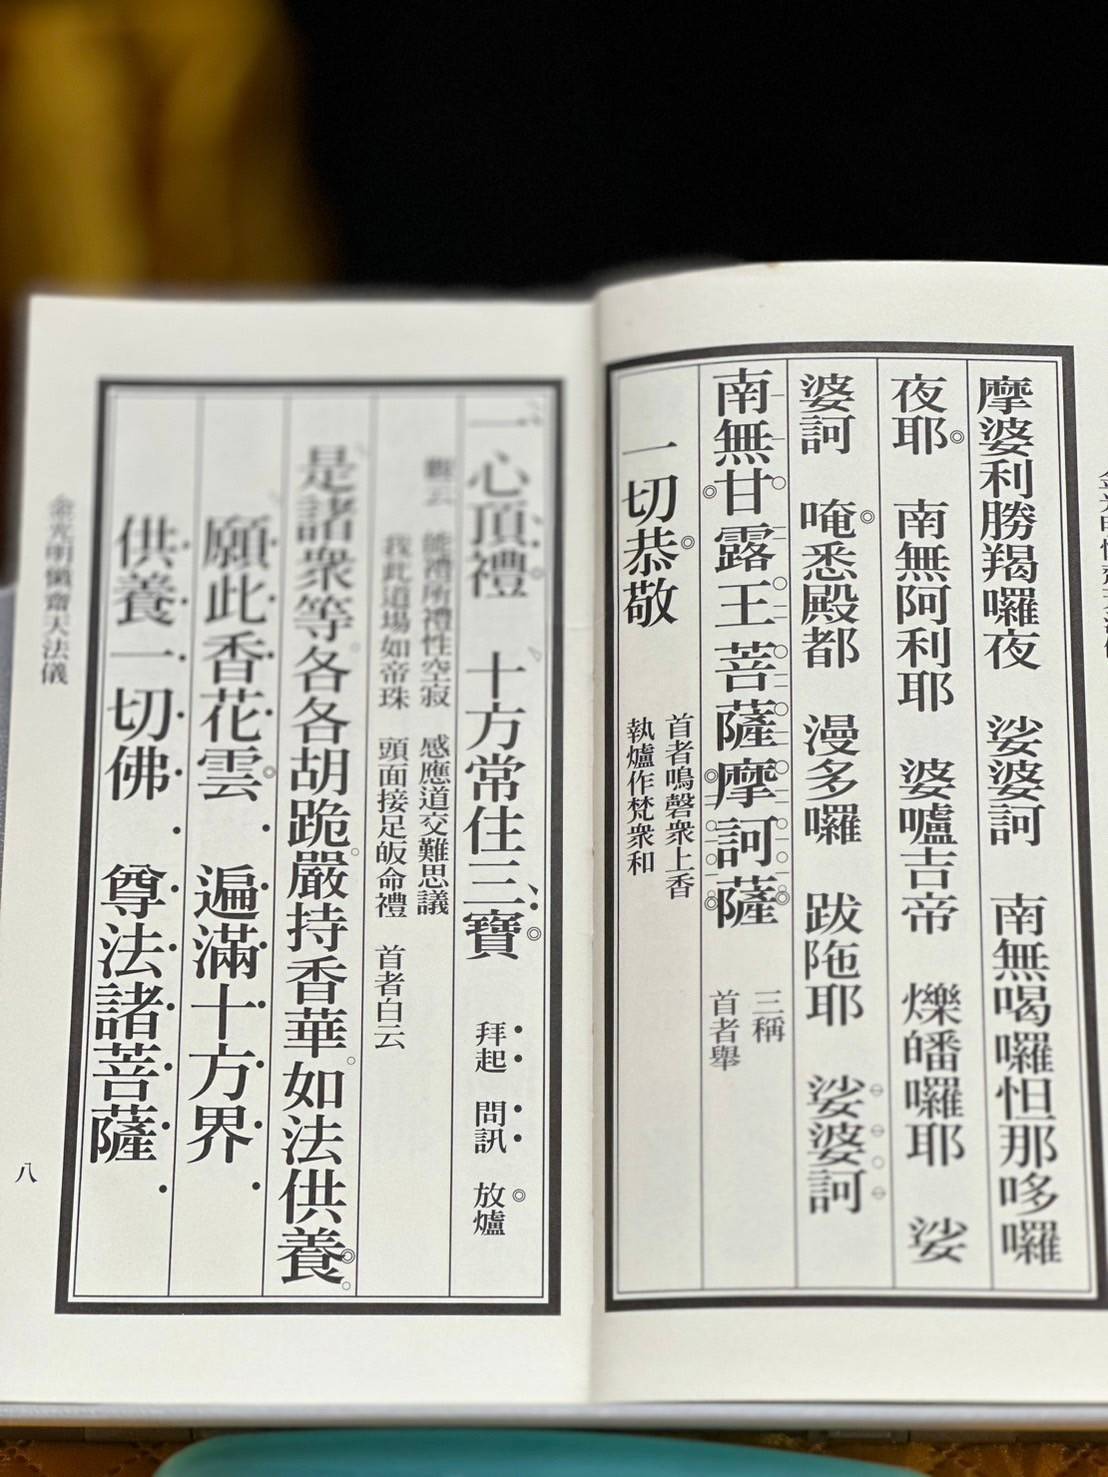 摩婆利勝羯囉夜　娑婆訶　南無喝囉怛那哆囉
夜耶　南無阿利耶　婆嚧吉帝　爍皤囉耶　娑
婆訶　唵悉殿都　漫多囉　跋陁耶　娑婆訶
南無甘露王菩薩摩訶薩　三稱
首者舉
一切恭敬　首者鳴磬衆上香
執爐作梵衆和
一心頂禮　十方常住三寶　拜起　問訊　放爐
觀云　能禮所禮性空寂　感應道交難思議
我此道場如帝珠　頭面接足皈命禮　首者白云
是諸衆等各各胡跪嚴持香華如法供養
願此香花雲　遍滿十方界
供養一切佛　尊法諸菩薩
金光明懺齋天法儀
八